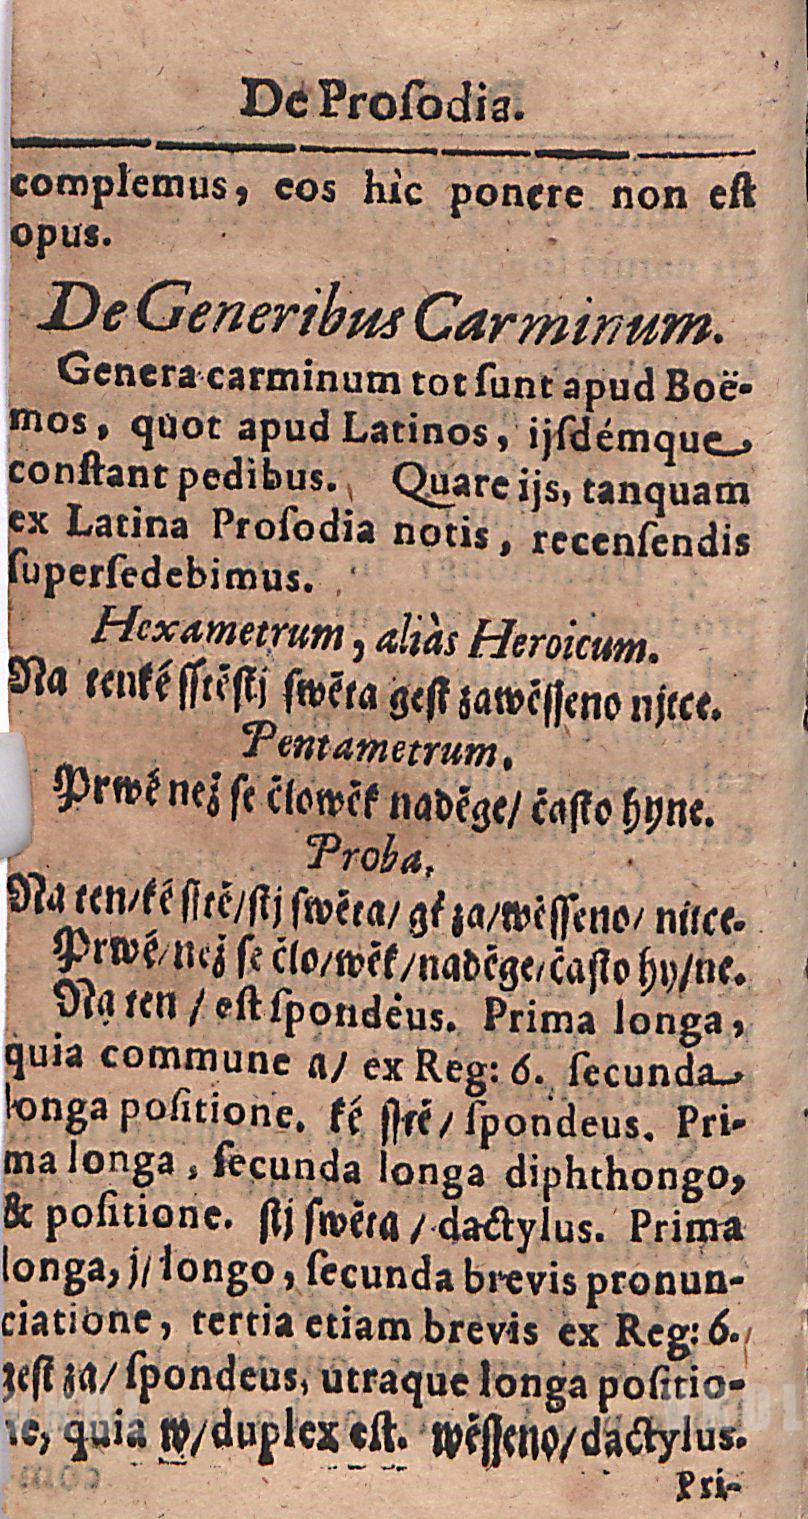 De Proſodia.
complemus, eos hìc ponere non eſt
opus.
De Generibus Carminum.
Genera carminum tot ſunt apud Boë-
mos, quot apud Latinos, ijſdémque
conſtant pedibus. Quare ijs, tanquam
ex Latina Proſodia notis, recenſendis
ſuperſedebimus.
Hexametrum, aliàs Heroicum.
Na tenké ſſtěſtj ſwěta geſt zawěſſeno njtce.
Pentametrum.
Prwé než ſe člowěk naděge/ čaſto hyne.
Proba.
Na ten/ké ſſtě/ſtj ſwěta/ gſt za/wěſſeno/ nitce.
Prwé/než ſe člo/wěk/naděge/čaſto hy/ne.
Na ten / eſt ſpondéus. Prima longa,
quia commune a/ ex Reg: 6. ſecunda
longa poſitione. ké ſſtě/ ſpondeus. Pri-
ma longa, ſecunda longa diphthongo,
& poſitione. ſtj ſwěta / dactylus. Prima
longa, j/ longo, ſecunda brevis pronun-
ciatione, tertia etiam brevis ex Reg: 6.
geſt za/ ſpondeus, utraque longa poſitio-
ne, quia w/duplex eſt. wěſſeno/dactylus.
Pri-